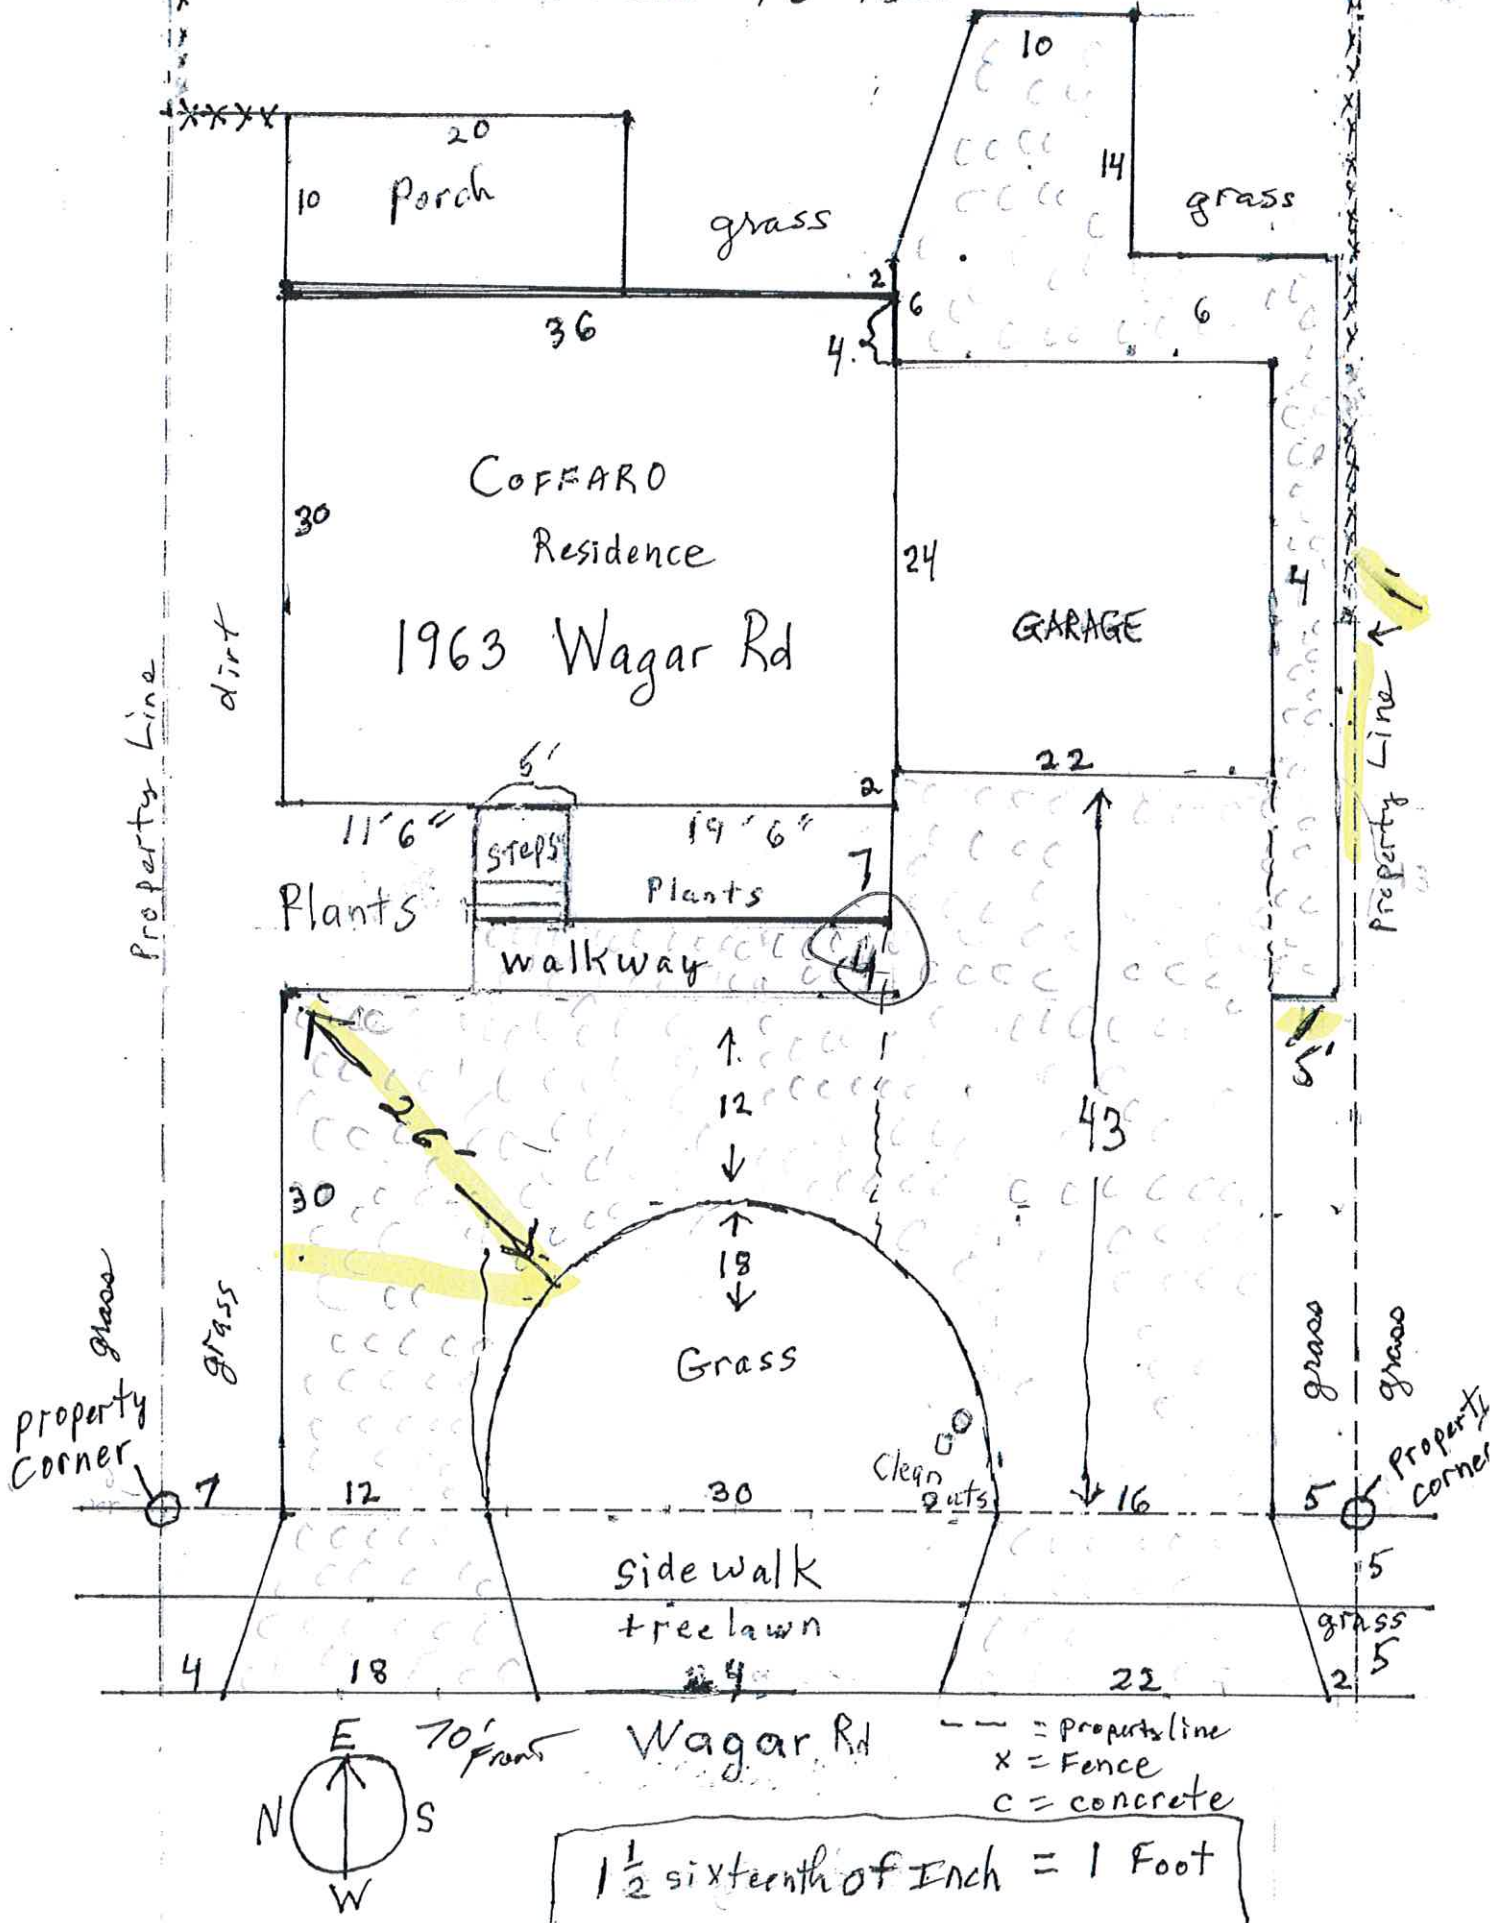 10
20
10
Porch
14
grass
grass
2
6
6
36
4
COFFARO
Residence
1963 Wagar Rd
30
24
GARAGE
4
1'
dirt
Property Line
Property Line
5'
22
2
11'6"
19'6"
STEPS
7
Plants
Plants
walkway
4
5'
12
43
26'
30
18
Grass
grass
grass
grass
grass
Property
Corner
Property
corner
Clean
outs
7
12
30
16
5
Sidewalk
5
treelawn
grass
5
4
18
4
22
2
E
N
S
W
70' Front
Wagar Rd
-- -- = Property line
x = Fence
c = concrete
1 1/2 sixteenth of Inch = 1 Foot